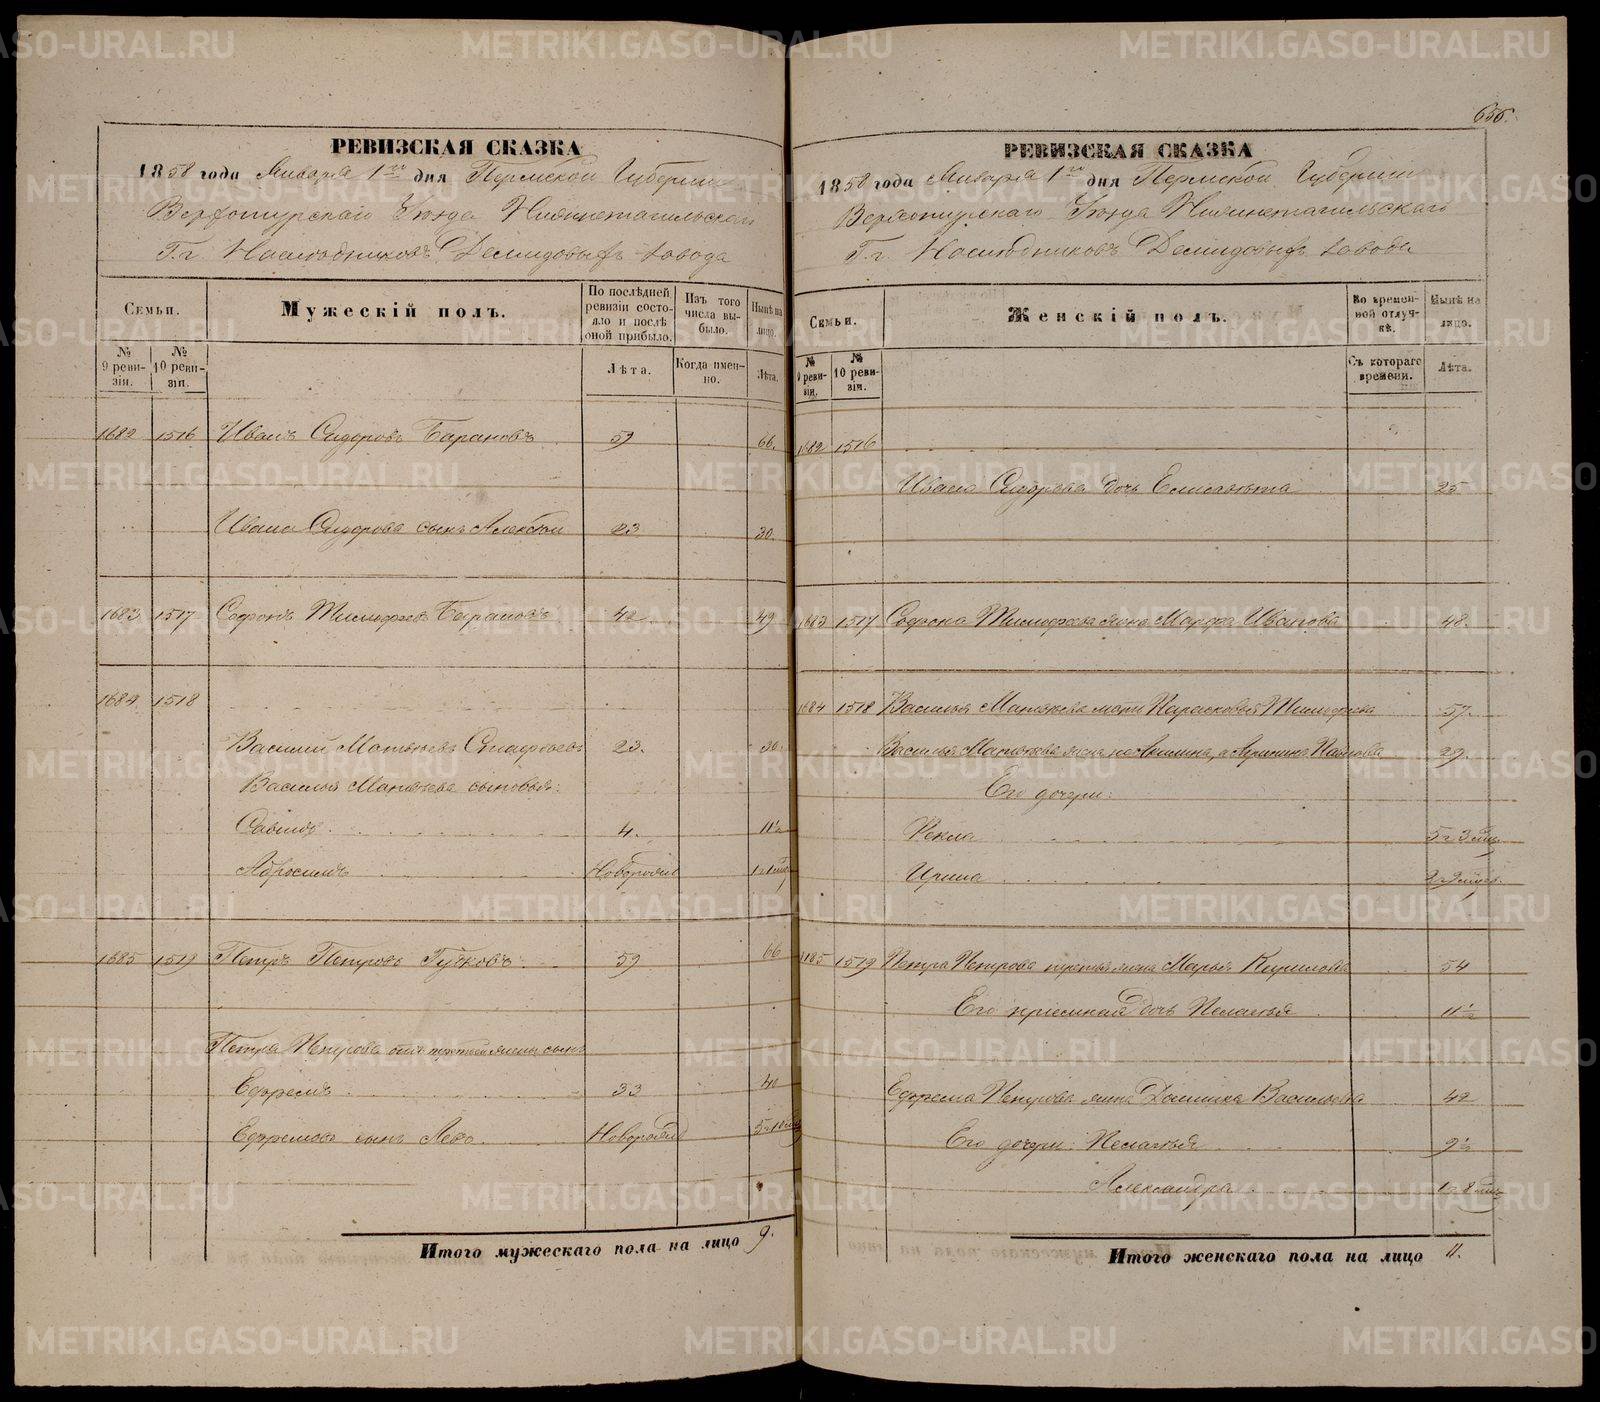 РЕВИЗСКАЯ СКАЗКА
1858 года Января 1го дня Пермской Губернии
Верхотурскаго Уѣзда Нижнетагильскаго
Г.г. Наслѣдниковъ Демидовыхъ завода
Семьи.
Мужескій полъ.
По послѣдней ревизіи состояло и послѣ оной прибыло.
Изъ того числа выбыло.
Нынѣ на лицо.
№ 9 ревизіи.
№ 10 ревизіи.
Лѣта.
Когда именно.
Лѣта.
1682 1516 Иванъ Сидоровъ Барановъ 59 66.
Ивана Сидорова сынъ Алексѣй 23 30.
1683 1517 Софонъ Тимофеевъ Барановъ 42 49
1684 1518
Василій Матвѣевъ 23. 30.
Василья Матвѣева сыновья:
4. 11½
Абросимъ Новорожд
1685 1519 Петръ Петровъ Гудковъ 59 66
Петра Петрова сынъ
Ефремъ 33 40
Ефремова сынъ Новорожд
Итого мужескаго пола на лицо 9.
656.
РЕВИЗСКАЯ СКАЗКА
1858 года Января 1го дня Пермской Губерніи
Верхотурскаго Уѣзда Нижнетагильскаго
Г.г. Наслѣдниковъ Демидовыхъ завода
Семьи.
Женскій полъ.
Во временной отлучкѣ.
Нынѣ на лицо.
№ 9 ревизіи.
№ 10 ревизіи.
Съ котораго времени.
Лѣта.
1682 1516
Ивана Сидорова дочь Елисавѣта 25
1683 1517 Софона Тимофеева жена Марфа Иванова 48.
1684 1518 Василья Матвѣева мать Парасковья Тимофеева 57.
Василья Матвѣева жена не Акилина, а Ирина Павлова 29.
Его дочери:
Фекла 5 г 3 мѣс
Ирина
1685 1519 Петра Петрова третья жена Марья Кирилова 54
Его пріемная дочь Пелагья 11½
Ефрема Петрова жена Домника Васильева 42
Его дочери: Пелагья 9½
Александра 1 г 8 мѣс
Итого женскаго пола на лицо 11.
METRIKI.GASO-URAL.RU